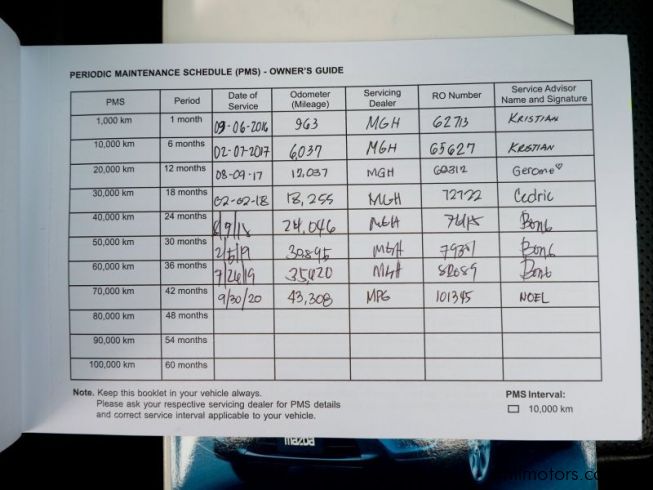 PERIODIC MAINTENANCE SCHEDULE (PMS) - OWNER'S GUIDE
PMS Period Date of Service Odometer (Mileage) Servicing Dealer RO Number Service Advisor Name and Signature
1,000 km 1 month 09-06-2016 963 MGH 62713 KRISTIAN
10,000 km 6 months 02-07-2017 6,037 MGH 65627 KRISTIAN
20,000 km 12 months 08-09-17 12,037 MGH 60312 Gerome
30,000 km 18 months 02-02-18 18,255 MGH 72722 Cedric
40,000 km 24 months 24,046 MGH Bong
50,000 km 30 months 2/5/19 30895 MGH Bong
60,000 km 36 months 7/26/19 35,420 MGH Bong
70,000 km 42 months 9/30/20 43,308 MPG 101345 NOEL
80,000 km 48 months
90,000 km 54 months
100,000 km 60 months
Note. Keep this booklet in your vehicle always.
Please ask your respective servicing dealer for PMS details
and correct service interval applicable to your vehicle.
PMS Interval:
10,000 km
mazda